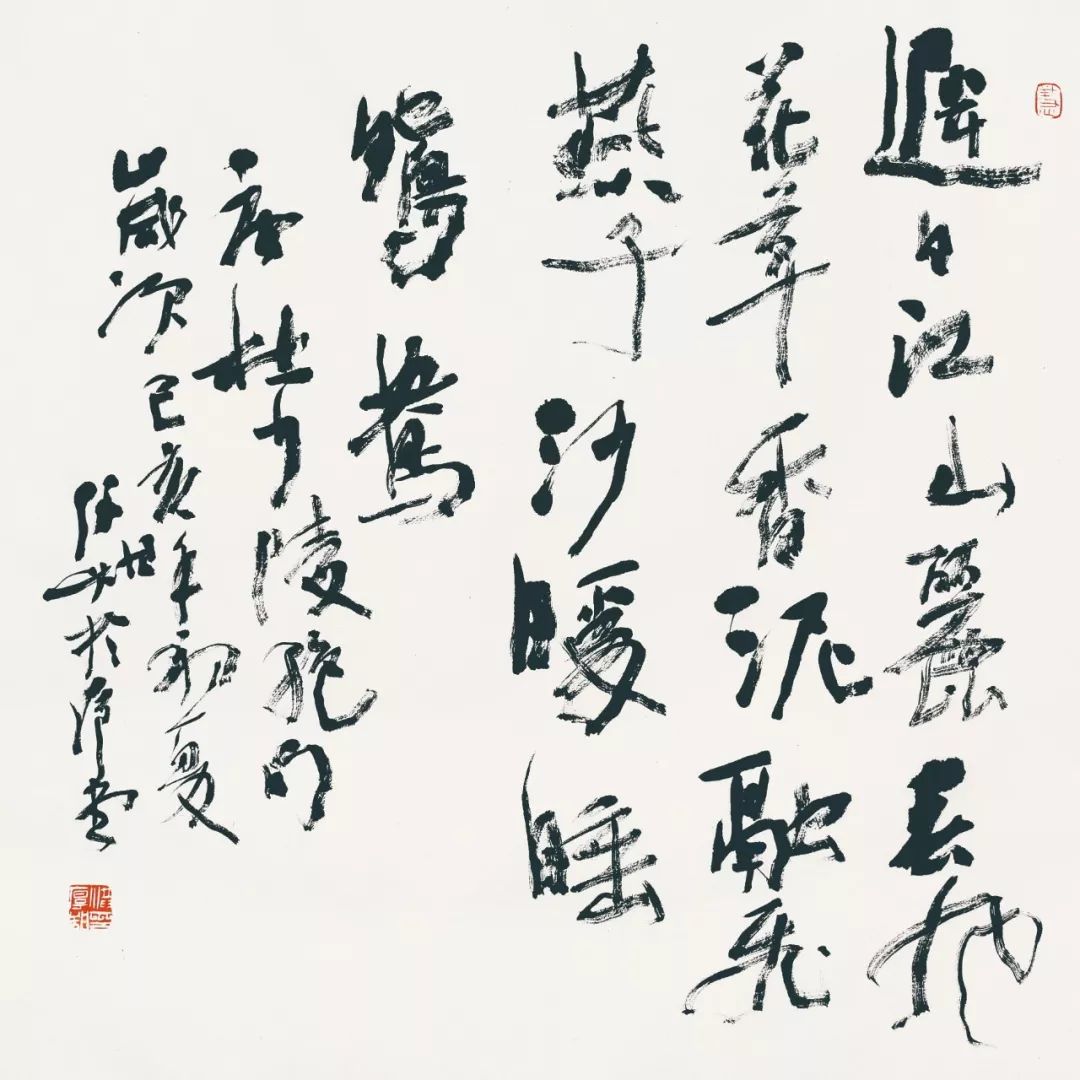 遲日江山麗春風
花草香泥融飛
燕子沙暖睡
鴛鴦
唐杜少陵絕句
歲次己亥年初夏
於堂